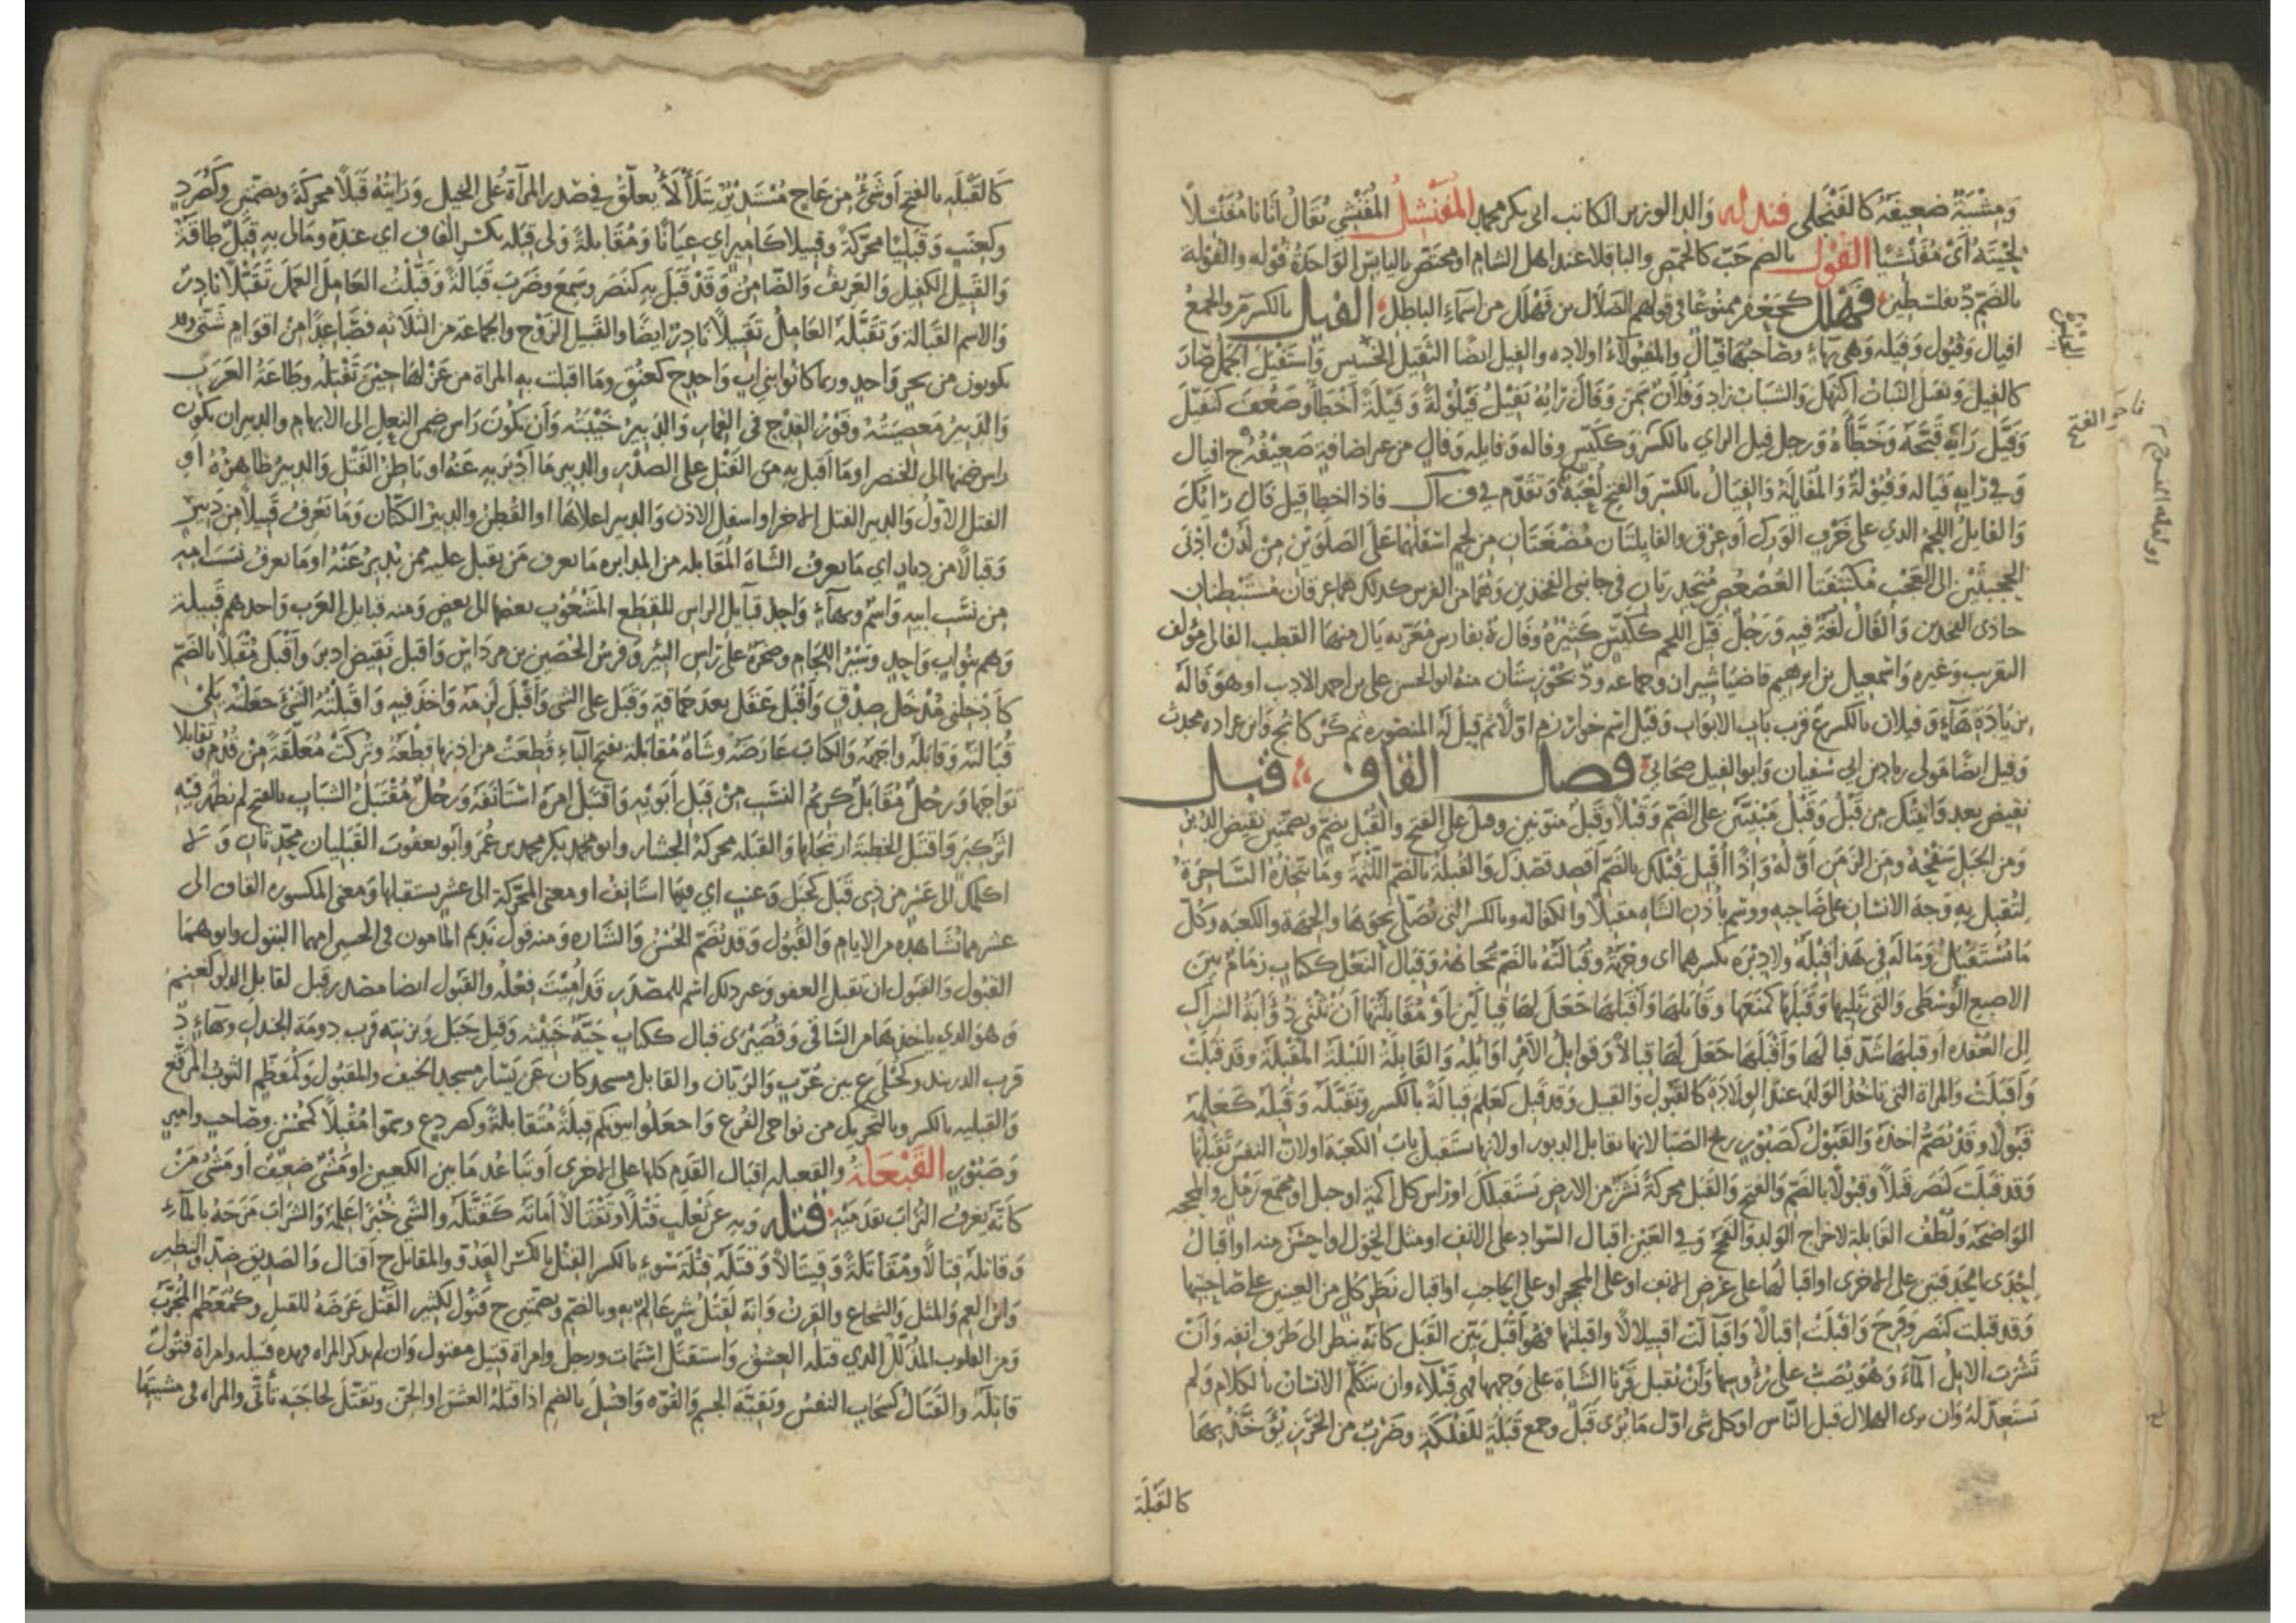 ومشية ضعيفة كالفنجلى فندله والد الوزير الكاتب ابى بكر محمد المفنشل المفنشي يقال اتانا مفنشلا
لحيته أى مفنشيا الفول بالضم حب كالحمص والباقلا عند اهل الشام او مختص باليابس الواحدة فوله والفولة
بالضم د بفلسطين فهلل كجعفر ممنوعا فى قولهم الضلال بن فهلل من اسمآء الباطل الفيل بالكسر م والجمع
افيال وفيول وفيله وهى بهاء وصاحبها فيال والمفيولاء اولاده والفيل ايضا الثقيل الخسيس واستفيل الجمل صار
كالفيل وتفيل النبات اكتهل والشباب زاد وفلان سمن وقال رايه يفيل فيلولة وفيلة أخطأ وضعف كتفيل
وفيل رايه قبحه وخطأه ورجل فيل الراي بالكسر وككيس وفاله وفايله وفال من غير اضافة ضعيفه ج افيال
وفي رايه فياله وفيولة والمفايلة والفيال بالكسر والفتح لعبة وتقدم في ف أ ل فاذا اخطا قيل قال رايك
والفايل اللحم الذي على خرب الورك أو عرق والفايلتان مضغتان من لحم اسفلهما على الصلوين من لدن ادنى
الحجبتين الى العجب مكتنفتا العصعص منحدرتان في جانبى الفخذين وهما من الفرس كذلك هما عرقان مستبطنان
حاذى الفخذين والفال لغة فيه ورجل فيل اللحم ككيس كثيره وفال ة بفارس معربه پال منها القطب الفالى مؤلف
التقريب وغيره واسمعيل بن ابرهيم قاضيا شيراز وجماعه ود بخوزستان منه ابو الحسن على بن احمد الاديب او هو فاله
بزيادة هاء وفيلان بالكسر ع قرب باب الابواب وفيل اسم خوارزم اولا ثم قيل له المنصوره ثم كركانج وابن عراده محدث
وفيل ايضا مولى زياد بن ابي سفيان وابو الفيل صحابي فصل القاف قبل
نقيض بعد وآتيك من قبل وقبل مبنيتين على الضم وقبلا وقبل منونتين وقبل على الفتح والقبل بضم وبضمتين نقيض الدبر
ومن الجبل سفحه ومن الزمن اوله واذا أقبل قبلك بالضم أقصد قصدك والقبلة بالضم اللثمة وما تتخذه الساحرة
لتقبل به وجه الانسان على صاحبه ووسم بأذن الشاه مقبلا والكفاله وبالكسر التى نصلى نحوها والجهة والكعبه وكل
ما يستقبل وماله في هذا قبلة ولا دبره بكسرهما اى وجهة وقبالته بالضم تجاهه وقبال النعل ككتاب زمام بين
الاصبع الوسطى والتى تليها وقبلها كمنعها وقابلها واقبلها جعل لها قبالين او مقابلتها أن تثنى ذؤابة الشراك
إلى العقده او قبلها شد قبالها واقبلها جعل لها قبالا وقوابل الأمر اوائله والقابلة الليلة المقبلة وقد قبلت
واقبلت والمراة التى تاخذ الولد عند الولادة كالقبول والقبيل وقد قبل كعلم قبالة بالكسر وتقبله وقبله كعلمه
قبولا وقد يضم اخذه والقبول كصبور ريح الصبا لانها تقابل الدبور او لانها تستقبل باب الكعبة او لان النفس تقبلها
وقد قبلت كنصر قبلا وقبولا بالضم والفتح والقبل محركة نشز من الارض يستقبلك او راس كل اكمة او جبل او مجتمع رمل والمحجه
الواضحه ولطف القابلة لاخراج الولد والفحج وفي العين اقبال السواد على الانف او مثل الحول او احسن منه او اقبال
إحدى الحدقتين على الاخرى او اقبالها على عرض الانف او على المحجر او على الحاجب او اقبال نظر كل من العينين على صاحبتها
وقد قبلت كنصر وفرح واقبلت إقبالا واقبآلت اقبيلالا واقبلتها فهو أقبل بين القبل كانه ينظر الى طرف انفه وان
تشرب الابل المآء وهو يصب على رؤوسها وأن يقبل قرنا الشاة على وجهها فهى قبلآء وان يتكلم الانسان بالكلام ولم
يستعد له وان يرى الهلال قبل الناس او كل شى اول ما يرى قبل وجمع قبلة للفلكة وضرب من الخرز يؤخذ بها
كالقبلة
كالقبله بالفتح أو شئ من عاج مستدير يتلألأ يعلق في صدر المرأة على الخيل ورايته قبلا محركة وبضمتين وكصرد
وكعنب وقبليا محركة وقبيلا كامير اي عيانا ومقابلة ولى قبله بكسر القاف اى عنده ومالى به قبل طاقة
والقبيل الكفيل والعريف والضامن وقد قبل به كنصر وسمع وضرب قبالة وقبلت العامل العمل تقبلا نادر
والاسم القبالة وتقبله العامل تقبيلا نادر ايضا والقبيل الزوج والجماعة من الثلاثه فصاعدا من اقوام شتى وقد
يكونون من نحر واحد وربما كانوا بنى اب واحد ج كعنق وما اقبلت به المراة من غزلها حين تفتله وطاعة الرب
والدبير معصيته وفوز القدح في القمار والدبير خيبته وأن يكون راس ضمن النعل الى الابهام والدبير ان يكون
راس ضمنها الى الخنصر او ما اقبل به من الفتل على الصدر والدبير ما أدبر به عنه او باطن الفتل والدبير ظاهره او
الفتل الاول والدبير الفتل الاخر او اسفل الاذن والدبير اعلاها او القطن والدبير الكتان وما يعرف قبيلا من دبير
وقبالا من دبار اي ما يعرف الشاة المقابله من المدابره ما يعرف من يقبل عليه ممن يدبر عنه او ما يعرف نسب امه
من نسب ابيه واسم وبهاء واحد قبايل الراس للقطع المشعوب بعضها الى بعض ومنه قبايل العرب واحدهم قبيلة
وهم بنو اب واحد وسير اللجام وصخرة على راس البئر وفرس الحصين بن مرداس واقبل نقيض ادبر واقبل مقبلا بالضم
كأدخلنى مدخل صدق واقبل عقل بعد حماقة وقبل على الشى وأقبل لزمه واخذ فيه واقبلته الشئ جعلته يلى
قبالته وقابله واجهه والكتاب عارضه وشاة مقابلة بفتح الباء قطعت من اذنها قطعة وتركت معلقة من قدم وتقابلا
تواجها ورجل مقابل كريم النسب من قبل أبويه واقتبل امره استانفه ورجل مقتبل الشباب بالفتح لم يظهر فيه
اثر كبر واقتبل الخطبة ارتجلها والقبله محركة الجشار وابو بكر محمد بن عمر وابو يعقوب القبليان محدثان ولا
اكلمك الى عشر من ذى قبل كجبل وعنب اي فيما استانف او معنى المحركة الى عشر يستقبلها ومعنى المكسوره القاف الى
عشر مما تشاهده من الايام والقبول وقد يضم الحسن والشاره ومنه قول نديم المامون فى الحسنين امهما البتول وابوهما
القبول والقبول ان تقبل العفو وغير ذلك اسم للمصدر قد أميت فعله والقبول ايضا مصدر قبل لقابل الدلو كعنهم
وهو الذي ياخذها من الساقى وقصيرى قبال ككتاب حية خبيثه وقبل جبل وبزنته قرب دومة الجندل وبهاء د
قرب الدربند وكحبلى ع بين عرب والريان والقابل مسجد كان عن يسار مسجد الخيف والمقبول وكمعظم الثوب المرقع
والقبليه بالكسر وبالتحريك من نواحى الفرع واجعلوا بيوتكم قبلة متقابلة وكصرد ع وسموا مقبلا كمحسن وصاحب وامير
وصبور القبعلة والقعبله اقبال القدم كلها على الاخرى أو تباعد ما بين الكعبين او مشى ضعيف او مشى من
كأنه يغرف التراب بقدميه قتله وبه عن ثعلب قتلا وتقتالا أماته كقتله والشى خبرا علمه والشراب مزجه بالماء
وقاتله قتالا ومقاتلة وقيتالا وقتله قتلة سوء بالكسر القتل بالكسر العدو والمقاتل ج أقتال والصديق ضد والنظير
وابن العم والمثل والشجاع والقرن وانه لقتل شر عالم به وبالضم وبضمتين ج قتول لكثير القتل عرضه للقتل وكمعظم المجرب
ومن القلوب المذلل الذي قتله العشق واستقتل استمات ورجل وامراة قتيل مقتول وان لم يذكر المراه فهذه قتيله وامراة قتول
قاتله والقتال كسحاب النفس وبقية الجسم والقوه واقتتل بالضم اذا قتله العشق او الجن وتقتل لحاجته تأتى والمراه فى مشيتها